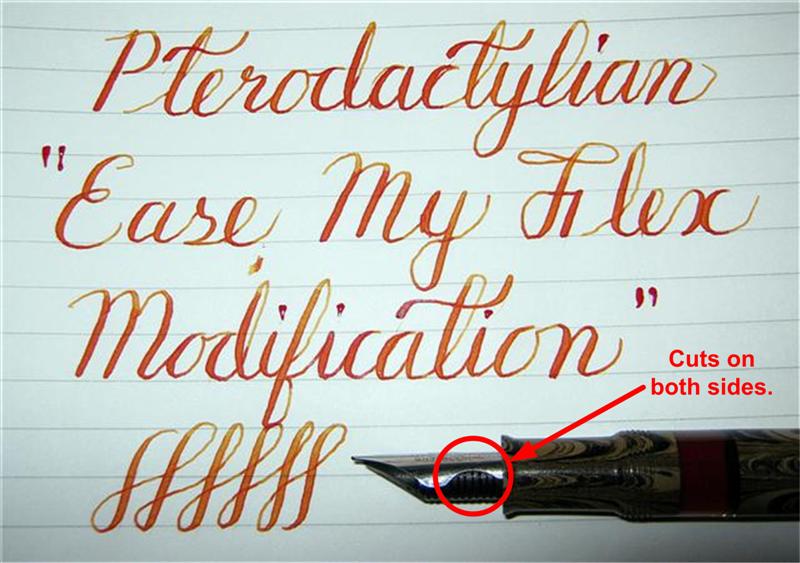 Pterodactylian
"Ease My Flex
Modification"
Cuts on
both sides.